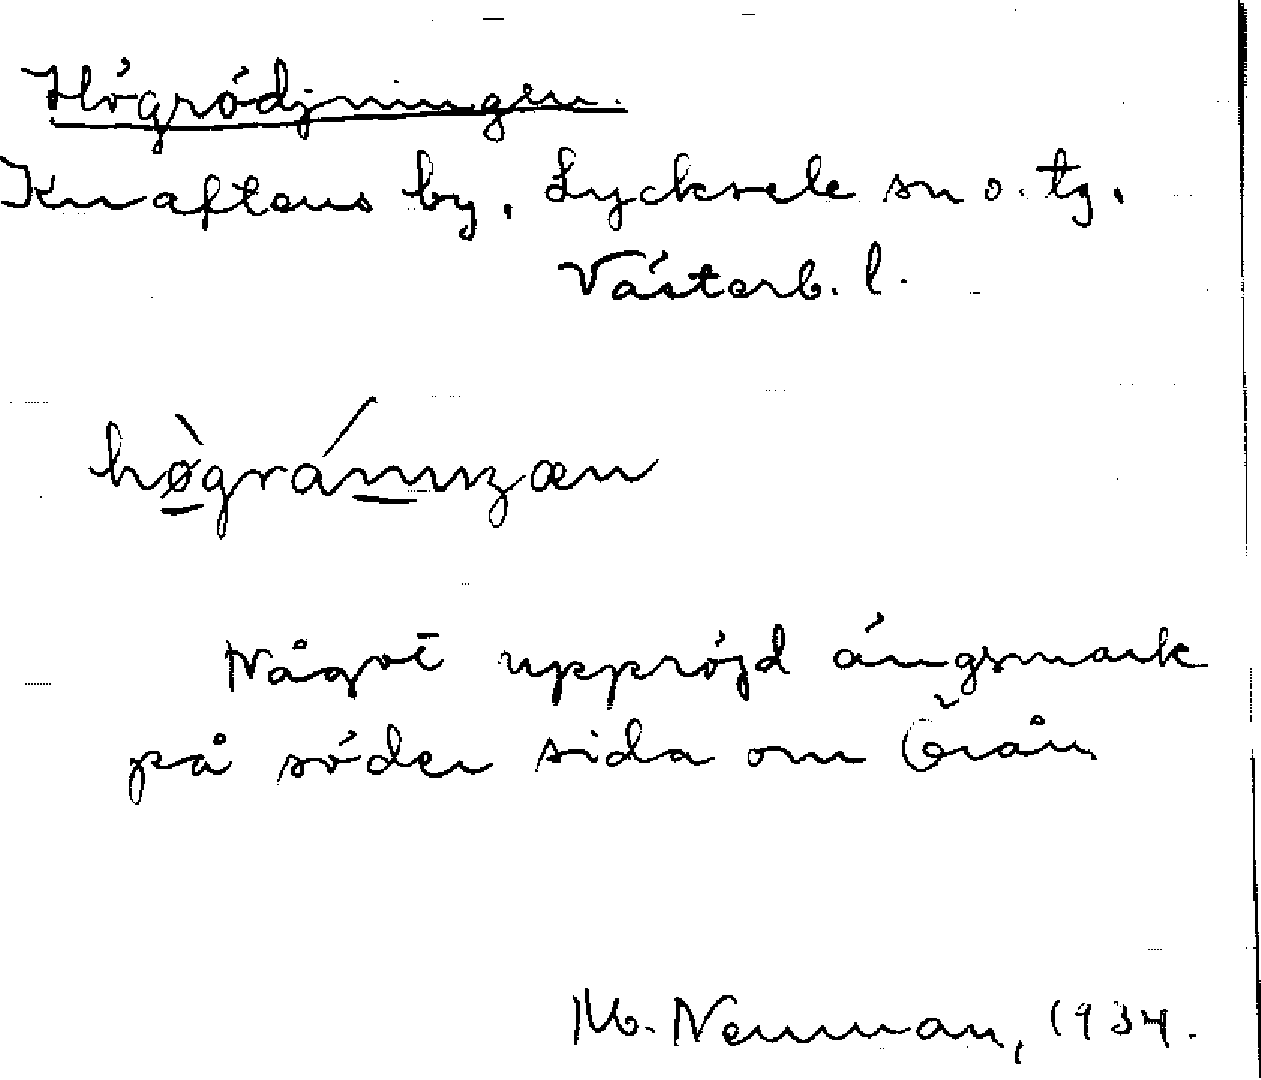 Högrödjningen.
Knaftens by, Lycksele sn o. tg.
Västerb. l.
Något uppröjd ängsmark
på söder sida om Örån
M. Neuman, 1934.